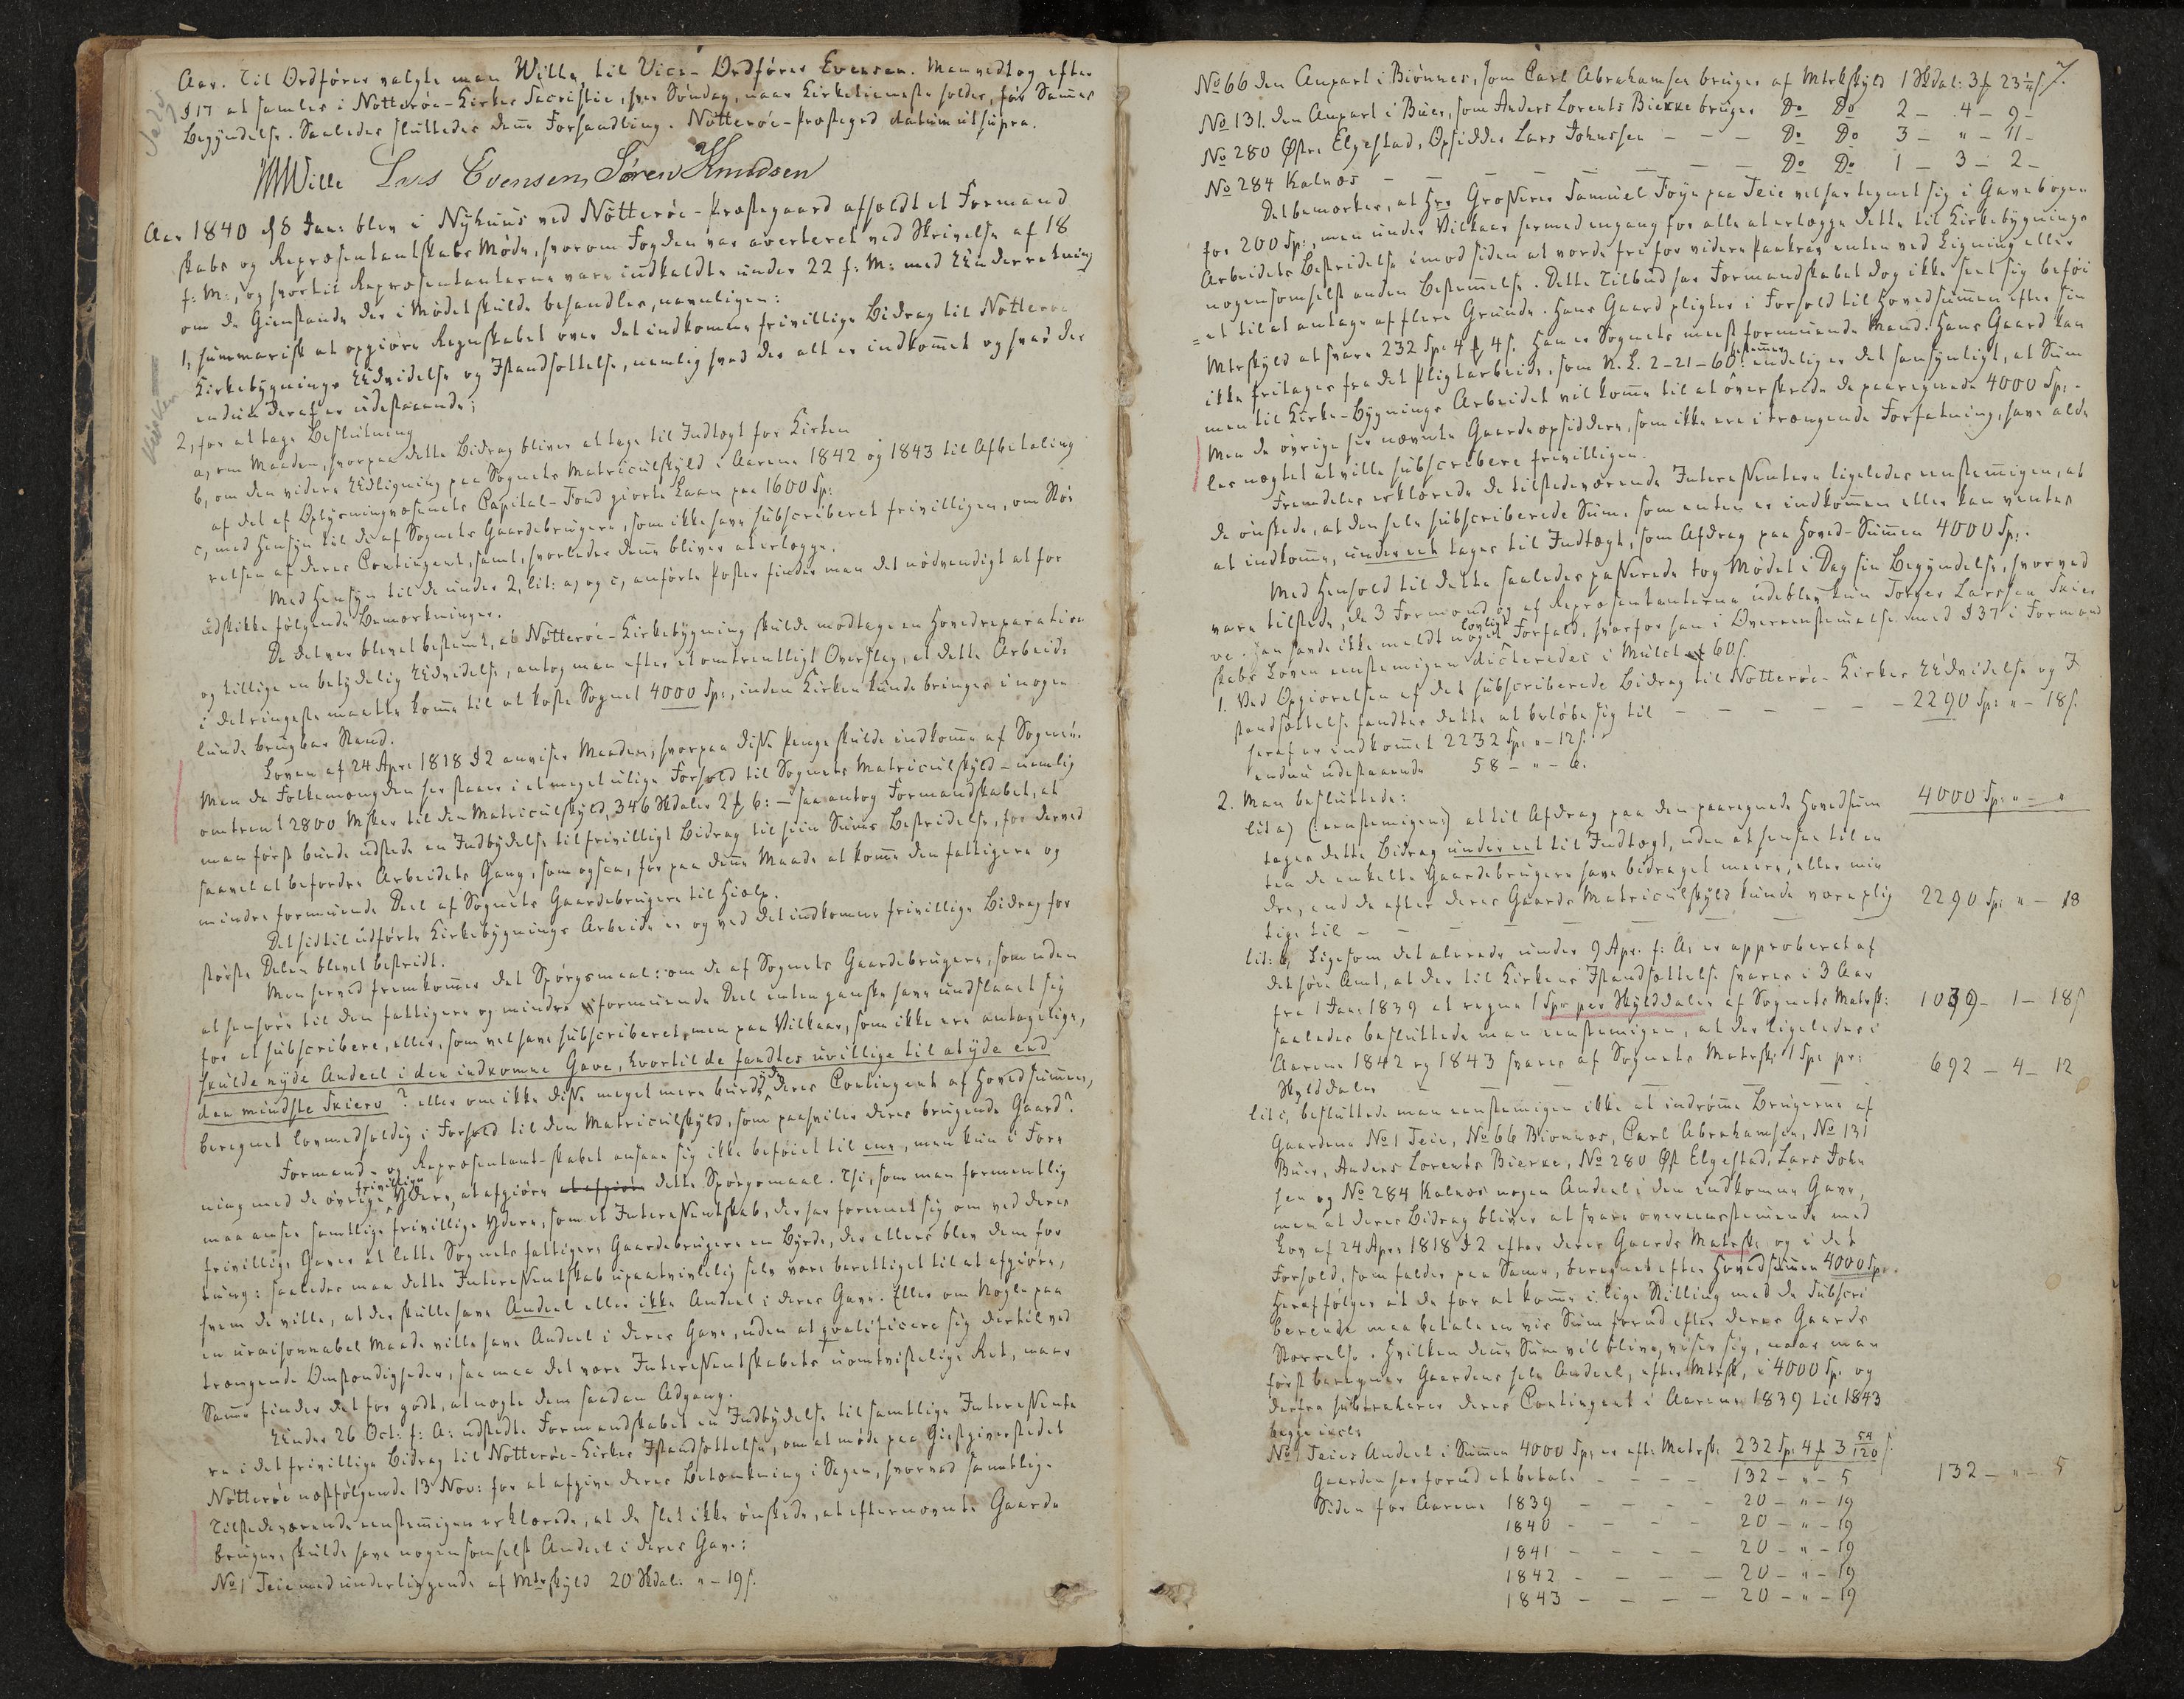 Aar. Til Ordfører valgte man Wille, til Vice-Ordfører Evensen. Man vedtog efter
§ 17 at samles i Nøtterøe-Kirkes Sacristie, hver Søndag, naar Kirketieneste holdes, før Sammes
Begyndelse. Saaledes sluttedes denne Forhandling. Nøtterøe-Præstegrd datum ut supra.
Wille Lars Evensen, Søren Knudsen
Aar 1840 d 8 Jan: blev i Nyhuus ved Nøtterøe-Præstegaard afholdt et Formand
skabs og Repræsentantskabs Møde, hvorom Fogden var averteret ved Skrivelse af 18
f: M:, og hvortil Repræsentanterne vare indkaldte under 22 f: M: med Underretning
om de Gienstande der i Mødet skulde behandles, navnligen:
1, summarisk at opgiøre Regnskabet over det indkomne frivillige Bidrag til Nøtterøe
Kirkebygnings Udvidelse og Istandsættelse, nemlig hvad der alt er indkommet og hvad der
endnu deraf er udestaaende;
2, for at tage Beslutning
a, om Maaden, hvorpaa dette Bidrag bliver at tage til Indtægt for Kirken
b, om den videre Udligning paa Sognets Matriculskyld i Aarene 1842 og 1843 til Afbetaling
af det af Oplysningvæsenets Capital-Fond giorte Laan paa 1600 Sp:
c, med Hensyn til de af Sognets Gaardebrugere, som ikke have subscriberet frivilligen, om Stør
relsen af deres Contingent, samt, hvorledes denne bliver at erlægge.
Med Hensyn til de under 2, lit: a, og c, anførte Poster finder man det nødvendigt at for
udskikke følgende Bemærkninger.
Da det var blevet bestemt, at Nøtterøe-Kirkebygning skulde modtage en Hovedreparation
og tillige en betydelig Udvidelse, antog man efter et omtrentligt Overslag, at dette Arbeide
i det ringeste maatte komme til at koste Sognet 4000 Sp:, inden Kirken kunde bringes i nogen
lunde brugbar Stand.
Loven af 24 Apr: 1818 § 2 anviser Maaden, hvorpaa disse Penge skulde indkomme af Sognet.
Men da Folkemængden her staaer i et meget ulige Forhold til Sognets Matriculskyld - nemlig
omtrent 2800 Msker til den Matriculskyld, 346 Skdaler 2 ƒ 6: - saa antog Formandskabet, at
man først burde udstede en Indbydelse til frivilligt Bidrag til hiin Sums Bestridelse, for derved
saavel at befordre Arbeidets Gang, som ogsaa, for paa denne Maade at komme den fattigere og
mindre formuende Deel af Sognets Gaardebrugere til Hielp.
Det hidtil udførte Kirkebygnings Arbeide er og ved det indkomne frivillige Bidrag for
største Delen blevet bestridt.
Men herved fremkommer det Spørgsmaal: om de af Sognets Gaardebrugere, som uden
at henhøre til den fattigere og mindre formuende Deel enten ganske have undslaaet sig
for at subscribere, eller, som vel have subscriberet, men paa Vilkaar, som ikke ere antagelige,
skulde nyde Andeel i den indkomne Gave, hvortil de fandtes uvillige til at yde end
den mindste Skierv? eller om ikke disse meget mere burde yde deres Contingent af Hovedsummen,
beregnet lovmedholdig i Forhold til den Matriculskyld, som paahviler deres brugende Gaard?
Formand- og Repræsentant-skabet ansaae sig ikke beføiet til ene, men kun i Fore
ning med de øvrige frivillige Ydere, at afgiøre at afgiøre dette Spørgsmaal. Thi, som man formentlig
maa ansee samtlige frivillige Ydere, som et Interessentskab, der har forenet sig om ved deres
frivillige Gaver at lette Sognets fattigere Gaardebrugere en Byrde, der ellers blev dem for
tung: saaledes maa dette Interessentskab upaatvivlelig selv være berettiget til at afgiøre,
hvem de ville, at der skulle have Andeel eller ikke Andeel i deres Gave. Eller om Nogle paa
en uraisonnabel Maade ville have Andeel i deres Gave, uden at qvalificere sig dertil ved
trængende Omstændigheder, saa maa det være Interessentskabets uomtvistelige Ret, naar
Samme finder det for godt, at nægte dem saadan Adgang.
Under 26 Oct: f: A: udstedte Formandskabet en Indbydelse til samtlige Interessente
re i det frivillige Bidrag til Nøtterøe-Kirkes Istandsættelse, om at møde paa Giestgiverstedet
Nøtterøe næstfølgende 13 Nov: for at afgive deres Betænkning i Sagen, hvorved samtlige
Tilstedeværende eenstemmigen erklærede, at de slet ikke ønskede, at efternævnte Gaarde
brugere skulde have nogensomhelst Andeel i deres Gave:
No 1 Teie med underliggende af Mtrskyld 20 Skdal: " - 19 s.
Kirken
7.
No 66 den Anpart i Biønnes, som Carl Abrahamsen bruger af Mtrkskyld 1 Skdal: 3 ƒ 23 1/4 s
No 131. den Anpart i Buer, som Anders Lorents Bierke bruger Do Do 2 - 4 - 9 -
No 280 Østre Elgestad, Opsidder Lars Johnssen - - - Do Do 3 - " - 11 -
No 284 Kalnæs - - - - - - Do Do 1 - 3 - 2 -
Det bemærkes, at Hr Grosserer Samuel Foyn paa Teie vel har tegnet sig i Gavebogen
for 200 Sp:, men under Vilkaar hermed engang for alle at erlægge dette til Kirkebygnings
Arbeidets Bestridelse imod siden at vorde fri for videre Paakrav enten ved Ligning eller
nogensomhelst anden Bestemmelse. Dette Tilbud har Formandskabet dog ikke seet sig beføi
=et til at antage af flere Grunde. Hans Gaard pligter i Forhold til Hovedsummen efter sin
Mtrskyld at svare 232 Sp: 4 ƒ 4 s. Han er Sognets meest formuende Mand. Hans Gaard kan
ikke fritages fra det Pligtarbeide, som N. L. 2-21-60 bestemmer: endelig er det sandsynligt, at Sum
men til Kirke-Bygnings Arbeidet vil komme til at overskride de paaregnede 4000 Sp: -
Men de øvrige her nævnte Gaardeopsiddere, som ikke ere i trængende Forfatning, have alde
les nægtet at ville subscribere frivilligen.
Fremdeles erklærede de tilstedeværende Interessentere ligeledes eenstemmigen, at
de ønskede, at den hele subscriberede Sum, som enten er indkommen eller kan ventes
at indkomme, under eet tages til Indtægt, som Afdrag paa Hoved-Summen 4000 Sp:.
Med Henhold til dette saaledes passerede tog Mødet i Dag sin Begyndelse, hvorved
vare tilstede, de 3 Formænd og af Repræsentanterne udeblev kun Torger Larssen Skier
ve. Han havde ikke meldt noget lovligt Forfald, hvorfor han i Overeenstemmelse med § 37 i Formand
skabs Loven eenstemmigen dicteredes i Mulct 60 s.
1. Ved Opgiørelsen af det subscriberede Bidrag til Nøtterøe-Kirkes Udvidelse og I
standsættelse fandtes dette at beløbe sig til - - - - - - 2290 Sp: " - 18 s.
heraf er indkommet 2232 Sp: " - 12 s.
endnu udestaaende 58 - " - 6.
2. Man besluttede: 4000 Sp: " - "
lit a) (: eenstemmigen:) at til Afdrag paa den paaregnede Hovedsum
tages dette Bidrag under eet til Indtægt, uden at hensee til en
ten de enkelte Gaardebrugere have bidraget meere, eller min
dre, end de efter deres Gaards Matriculskyld kunde være plig
tige til - - - - - - - 2290 Sp: " - 18
lit: b, Ligesom det alerede under 9 Apr. f: A: er approberet af
det høie Amt, at der til Kirkens Istandsættelse svares i 3 Aar
fra 1 Jan: 1839 at regne 1 Spr per Skylddaler af Sognets Matrsk: 1039 - 1 - 18 s
saaledes besluttede man eenstemmigen, at der ligeledes i
Aarene 1842 og 1843 svares af Sognets Matrsk: 1 Sp: pr:
Skylddaler - - - - - 692 - 4 - 12
lit c, besluttede man eenstemmigen ikke at indrømme Brugerne af
Gaardene No 1 Teie, No 66 Bionnæs, Carl Abrahamsen, No 131
Buer, Anders Lorents Bierke, No 280 Øst Elgestad, Lars John
sen og No 284 Kalnæs nogen Andeel i den indkomne Gave,
men at deres Bidrag bliver at svare overeensstemmende med
Lov af 24 Apr: 1818 § 2 efter deres Gaards Matrsk: og i det
Forhold, som falder paa Samme, beregnet efter Hovedsummen 4000 Sp.
Heraf følger at de for at komme i lige Stilling med de Subscri
berende maa betale en vis Sum forud efter deres Gaards
Størrelse. Hvilken denne Sum vil blive, viser sig, naar man
først beregner Gaardens hele Andeel, efter Mtrsk, i 4000 Sp. og
derfra subtraherer deres Contingent i Aarene 1839 til 1843
begge incl:
No 1 Teies Andeel i Summen 4000 Sp: er eft: Matrsk: 232 Sp: 4 ƒ 3 54/120 s.
Gaarden har forud at betale - - - - 132 - " - 5 132 - " - 5
Siden for Aarene 1839 - - - - 20 - " - 19
1840 - - - - 20 - " - 19
1841 - - - - 20 - " - 19
1842 - - - - 20 - " - 19
1843 - - - - 20 - " - 19